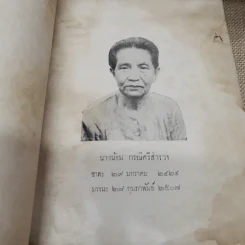 นางน้อม กรณีศรีสำรวจ
ชาตะ ๒๙ มกราคม ๒๔๒๕
มรณะ ๒๙ กุมภาพันธ์ ๒๕๐๗